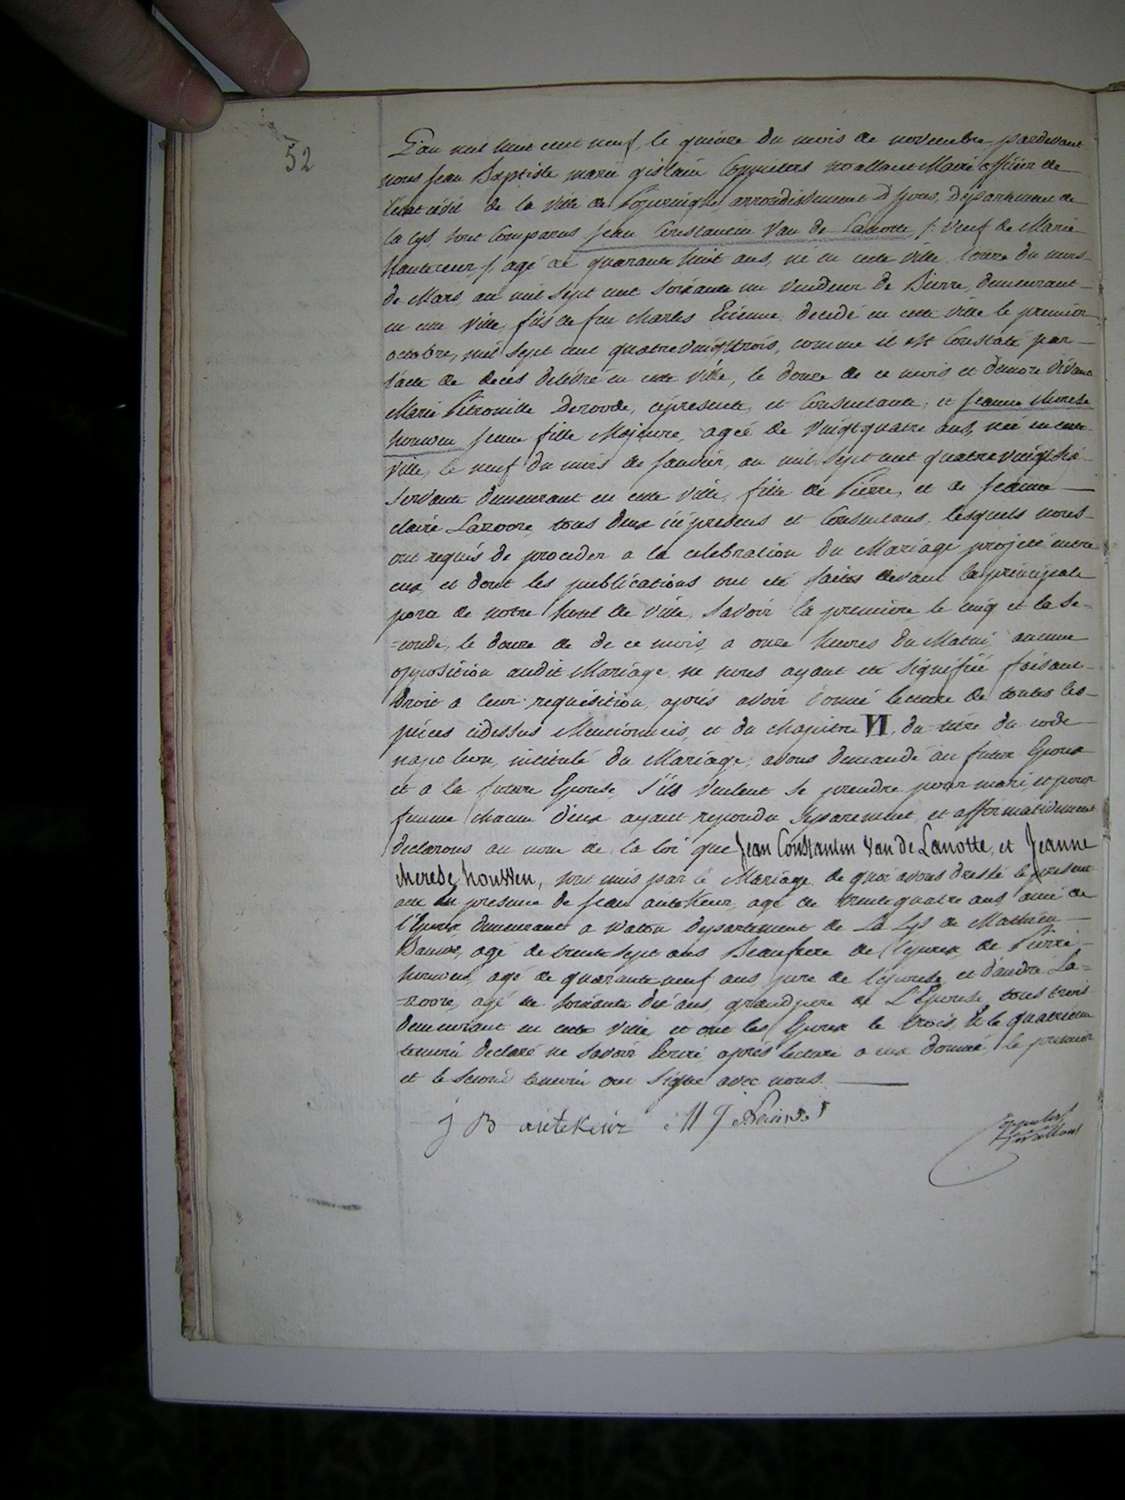 52
L'an mil huit cent neuf, le quinze du mois de novembre pardevant
nous Jean Baptiste marie gislain Coppieters Maire officier de
l'etat civil de la ville de Poperinghe, arrondissement d'Ypres, département de
la Lys, sont Comparus Jean Constantin Van de Lanotte /: veuf de Marie
hautecoeur :/ agé de quarante huit ans, né en cette ville du mois
de Mars an mil sept cent soixante un vendeur de Bierre, demeurant
en cette ville, fils de feu Charles Etienne, decedé en cette ville le premier
octobre, mil sept cent quatrevingttrois, comme il est Constaté par
l'acte de decés delivré en cette ville, le douze de ce mois et d'encore vivante
Marie Petronille Deroode, cipresente, et Consentante; et Jeanne therese
houwen jeune fille Majeure, agée de vingtquatre ans, née en cette
ville, le neuf du mois de janvier, an mil sept cent quatrevingt
Servante demeurant en cette ville, fille de Pierre, et de Jeanne
claire Laroore, tous deux cipresens et Consentans, lesquels nous
ont requis de proceder a la celebration du Mariage projeté entre
eux et dont les publications ont eté faites devant la principale
porte de notre hotel de ville, Savoir la premiere, le cinq et la se-
=conde, le douze de de ce mois, a onze heures du Matin, aucune
opposition audit Mariage ne nous ayant eté signifiée faisant
Droit a leur requisition, aprés avoir donné lecture de toutes les
piéces cidessus Mentionnés, et du chapitre VI, du titre du code
napoleon, intitulé du Mariage, avons demandé au futur Epoux
et a la future Epouse, s'ils veulent se prendre pour mari, et pour
femme, chacun d'eux ayant repondu Separement, et affirmativement
declarons au nom de la loi que Jean Constantin Van de Lanotte, et Jeanne
therese houwen, sont unis par le Mariage, de quoi avons dressé le present
acte en presence de Jean autekeur, agé de trentequatre ans ami de
l'Epoux demeurant a watou departement de La Lys de Mathieu
agé de trentesept ans Beaufrere de l'epoux, de Pierre
houwen, agé de quaranteneuf ans, pere de l'epouse, et d'andré La-
=roore, agé de soixante dix ans, grandpere de L'Epouse, tous trois
demeurant en cette ville et ont les Epoux le trois, et le quatrieme
temoin declaré ne savoir Ecrire, aprés lecture a eux donnée, le premier
et le second temoin ont signé avec nous.
J B autekeur M J
Coppieters